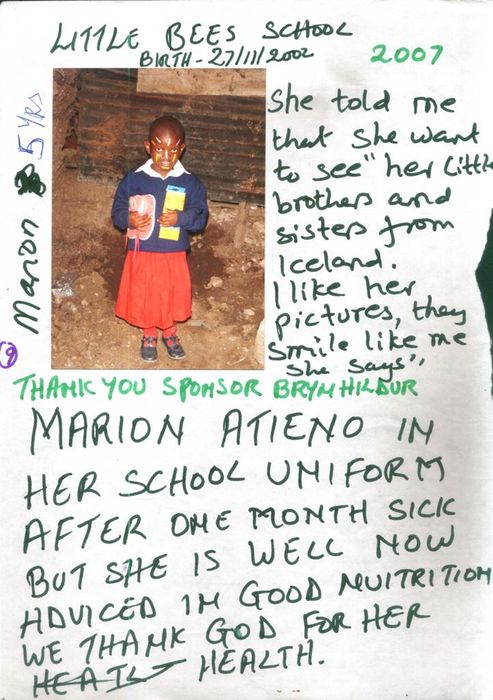 LITTLE BEES SCHOOL
BIRTH - 27/11/2002
2007
Marion 5 YRS
She told me
that she want
to see "her Little
brothers and
sisters from
Iceland.
I like her
pictures, they
smile like me
she says"
9
THANK YOU SPONSOR BRYNHILDUR
MARION ATIENO IN
HER SCHOOL UNIFORM
AFTER ONE MONTH SICK
BUT SHE IS WELL NOW
ADVICED IN GOOD NUITRITION
WE THANK GOD FOR HER
HEATL HEALTH.